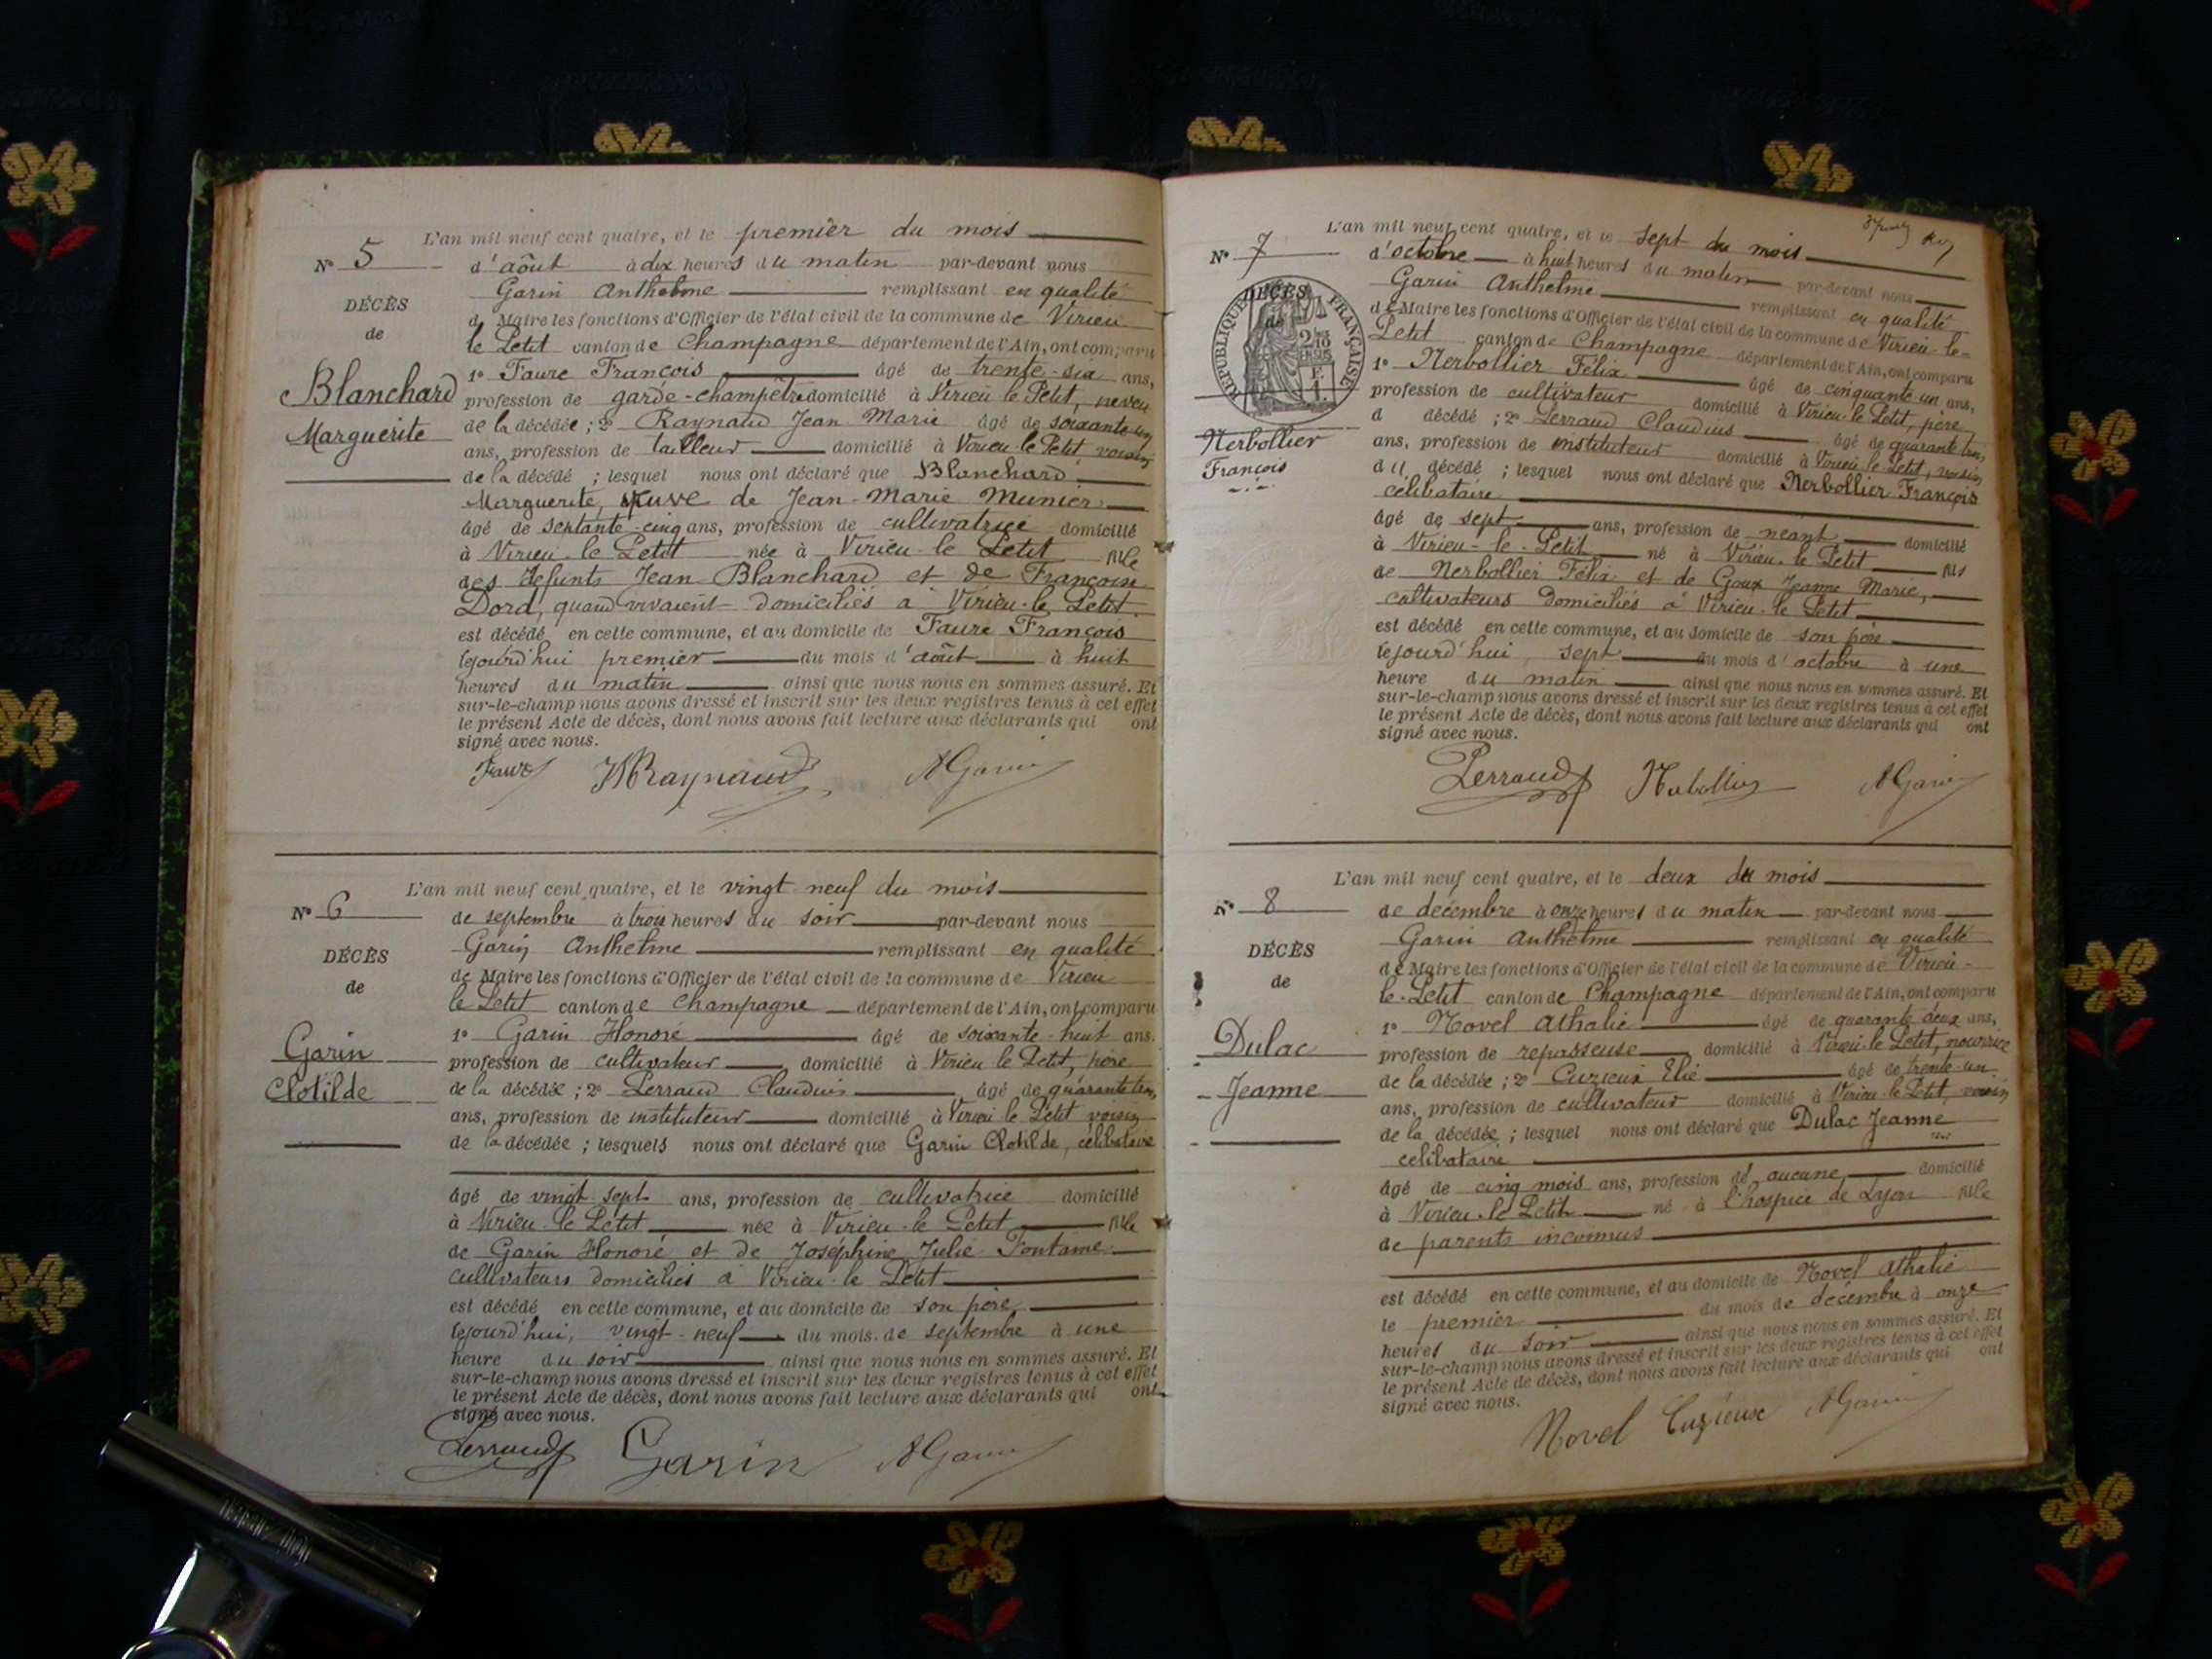 L'an mil neuf cent quatre, et le premier du mois
N° 5 d'août à dix heures du matin par-devant nous
Garin Anthelme remplissant en qualité
DÉCÈS
de Maire les fonctions d'Officier de l'état civil de la commune de Virieu
de
le Petit canton de Champagne département de l'Ain, ont comparu
1° Faure François âgé de trente-six ans,
Blanchard
profession de garde-champêtre domicilié à Virieu le Petit, neveu
de la décédée ; 2° Raynaud Jean Marie âgé de soixante un
Marguerite
ans, profession de tailleur domicilié à Virieu le Petit voisin
de la décédé ; lesquel nous ont déclaré que Blanchard
Marguerite, veuve de Jean-Marie Munier
âgé de septante-cinq ans, profession de cultivatrice domicilié
à Virieu-le Petit née à Virieu-le Petit fille
des défunts Jean Blanchard et de Françoise
Dord, quand vivaient domiciliés à Virieu-le Petit
est décédé en cette commune, et au domicile de Faure François
lejourd'hui premier du mois d'août à huit
heures du matin ainsi que nous nous en sommes assuré. Et
sur-le-champ nous avons dressé et inscrit sur les deux registres tenus à cet effet
le présent Acte de décès, dont nous avons fait lecture aux déclarants qui ont
signé avec nous.
Faure JMRaynaud AGarin
L'an mil neuf cent quatre, et le vingt neuf du mois
N° 6 de septembre à trois heures du soir par-devant nous
Garin Anthelme remplissant en qualité
DÉCÈS
de Maire les fonctions d'Officier de l'état civil de la commune de Virieu
de
le Petit canton de Champagne département de l'Ain, ont comparu
1° Garin Honoré âgé de soixante-huit ans.
Garin
profession de cultivateur domicilié à Virieu le Petit, père
Clotilde
de la décédée ; 2° Perraud Claudius âgé de quarante trois
ans, profession de instituteur domicilié à Virieu le Petit voisin
de la décédée ; lesquels nous ont déclaré que Garin Clotilde, célibataire
âgé de vingt-sept ans, profession de cultivatrice domicilié
à Virieu-le Petit née à Virieu-le Petit fille
de Garin Honoré et de Joséphine Julie Fontaine
cultivateurs domiciliés à Virieu-le Petit
est décédé en cette commune, et au domicile de son père
lejourd'hui, vingt-neuf du mois de septembre à une
heure du soir ainsi que nous nous en sommes assuré. Et
sur-le-champ nous avons dressé et inscrit sur les deux registres tenus à cet effet
le présent Acte de décès, dont nous avons fait lecture aux déclarants qui ont
signé avec nous.
Perraud Garin AGarin
L'an mil neuf cent quatre, et le sept du mois
N° 7 d'octobre à huit heures du matin par-devant nous
Garin Anthelme remplissant en qualité
DÉCÈS
de
RÉPUBLIQUE FRANÇAISE
de Maire les fonctions d'Officier de l'état civil de la commune de Virieu-le-
Petit canton de Champagne département de l'Ain, ont comparu
1° Nerbollier Félix âgé de cinquante-un ans,
profession de cultivateur domicilié à Virieu-le Petit, père
d décédé ; 2° Perraud Claudius âgé de quarante trois
Nerbollier
ans, profession de instituteur domicilié à Virieu le Petit, voisin
François
du décédé ; lesquel nous ont déclaré que Nerbollier François
célibataire
âgé de sept ans, profession de néant domicilié
à Virieu-le-Petit né à Virieu-le Petit fils
de Nerbollier Félix et de Goux Jeanne Marie,
cultivateurs domiciliés à Virieu-le Petit
est décédé en cette commune, et au domicile de son père
lejourd'hui, sept du mois d'octobre à une
heure du matin ainsi que nous nous en sommes assuré. Et
sur-le-champ nous avons dressé et inscrit sur les deux registres tenus à cet effet
le présent Acte de décès, dont nous avons fait lecture aux déclarants qui ont
signé avec nous.
Perraud Nerbollier AGarin
L'an mil neuf cent quatre, et le deux du mois
N° 8 de décembre à onze heures du matin par-devant nous
Garin Anthelme remplissant en qualité
DÉCÈS
de Maire les fonctions d'Officier de l'état civil de la commune de Virieu-
de
le-Petit canton de Champagne département de l'Ain, ont comparu
1° Novel Athalie âgé de quarante deux ans,
Dulac
profession de repasseuse domicilié à Virieu-le Petit, nourrice
de la décédée ; 2° Cuzieux Elie âgé de trente-un
Jeanne
ans, profession de cultivateur domicilié à Virieu-le Petit, voisin
de la décédée ; lesquel nous ont déclaré que Dulac Jeanne
célibataire
âgé de cinq mois ans, profession de aucune domicilié
à Virieu-le Petit né à l'hospice de Lyon fille
de parents inconnus
est décédé en cette commune, et au domicile de Novel Athalie
le premier du mois de décembre à onze
heures du soir ainsi que nous nous en sommes assuré. Et
sur-le-champ nous avons dressé et inscrit sur les deux registres tenus à cet effet
le présent Acte de décès, dont nous avons fait lecture aux déclarants qui ont
signé avec nous.
Novel Cuzieux AGarin